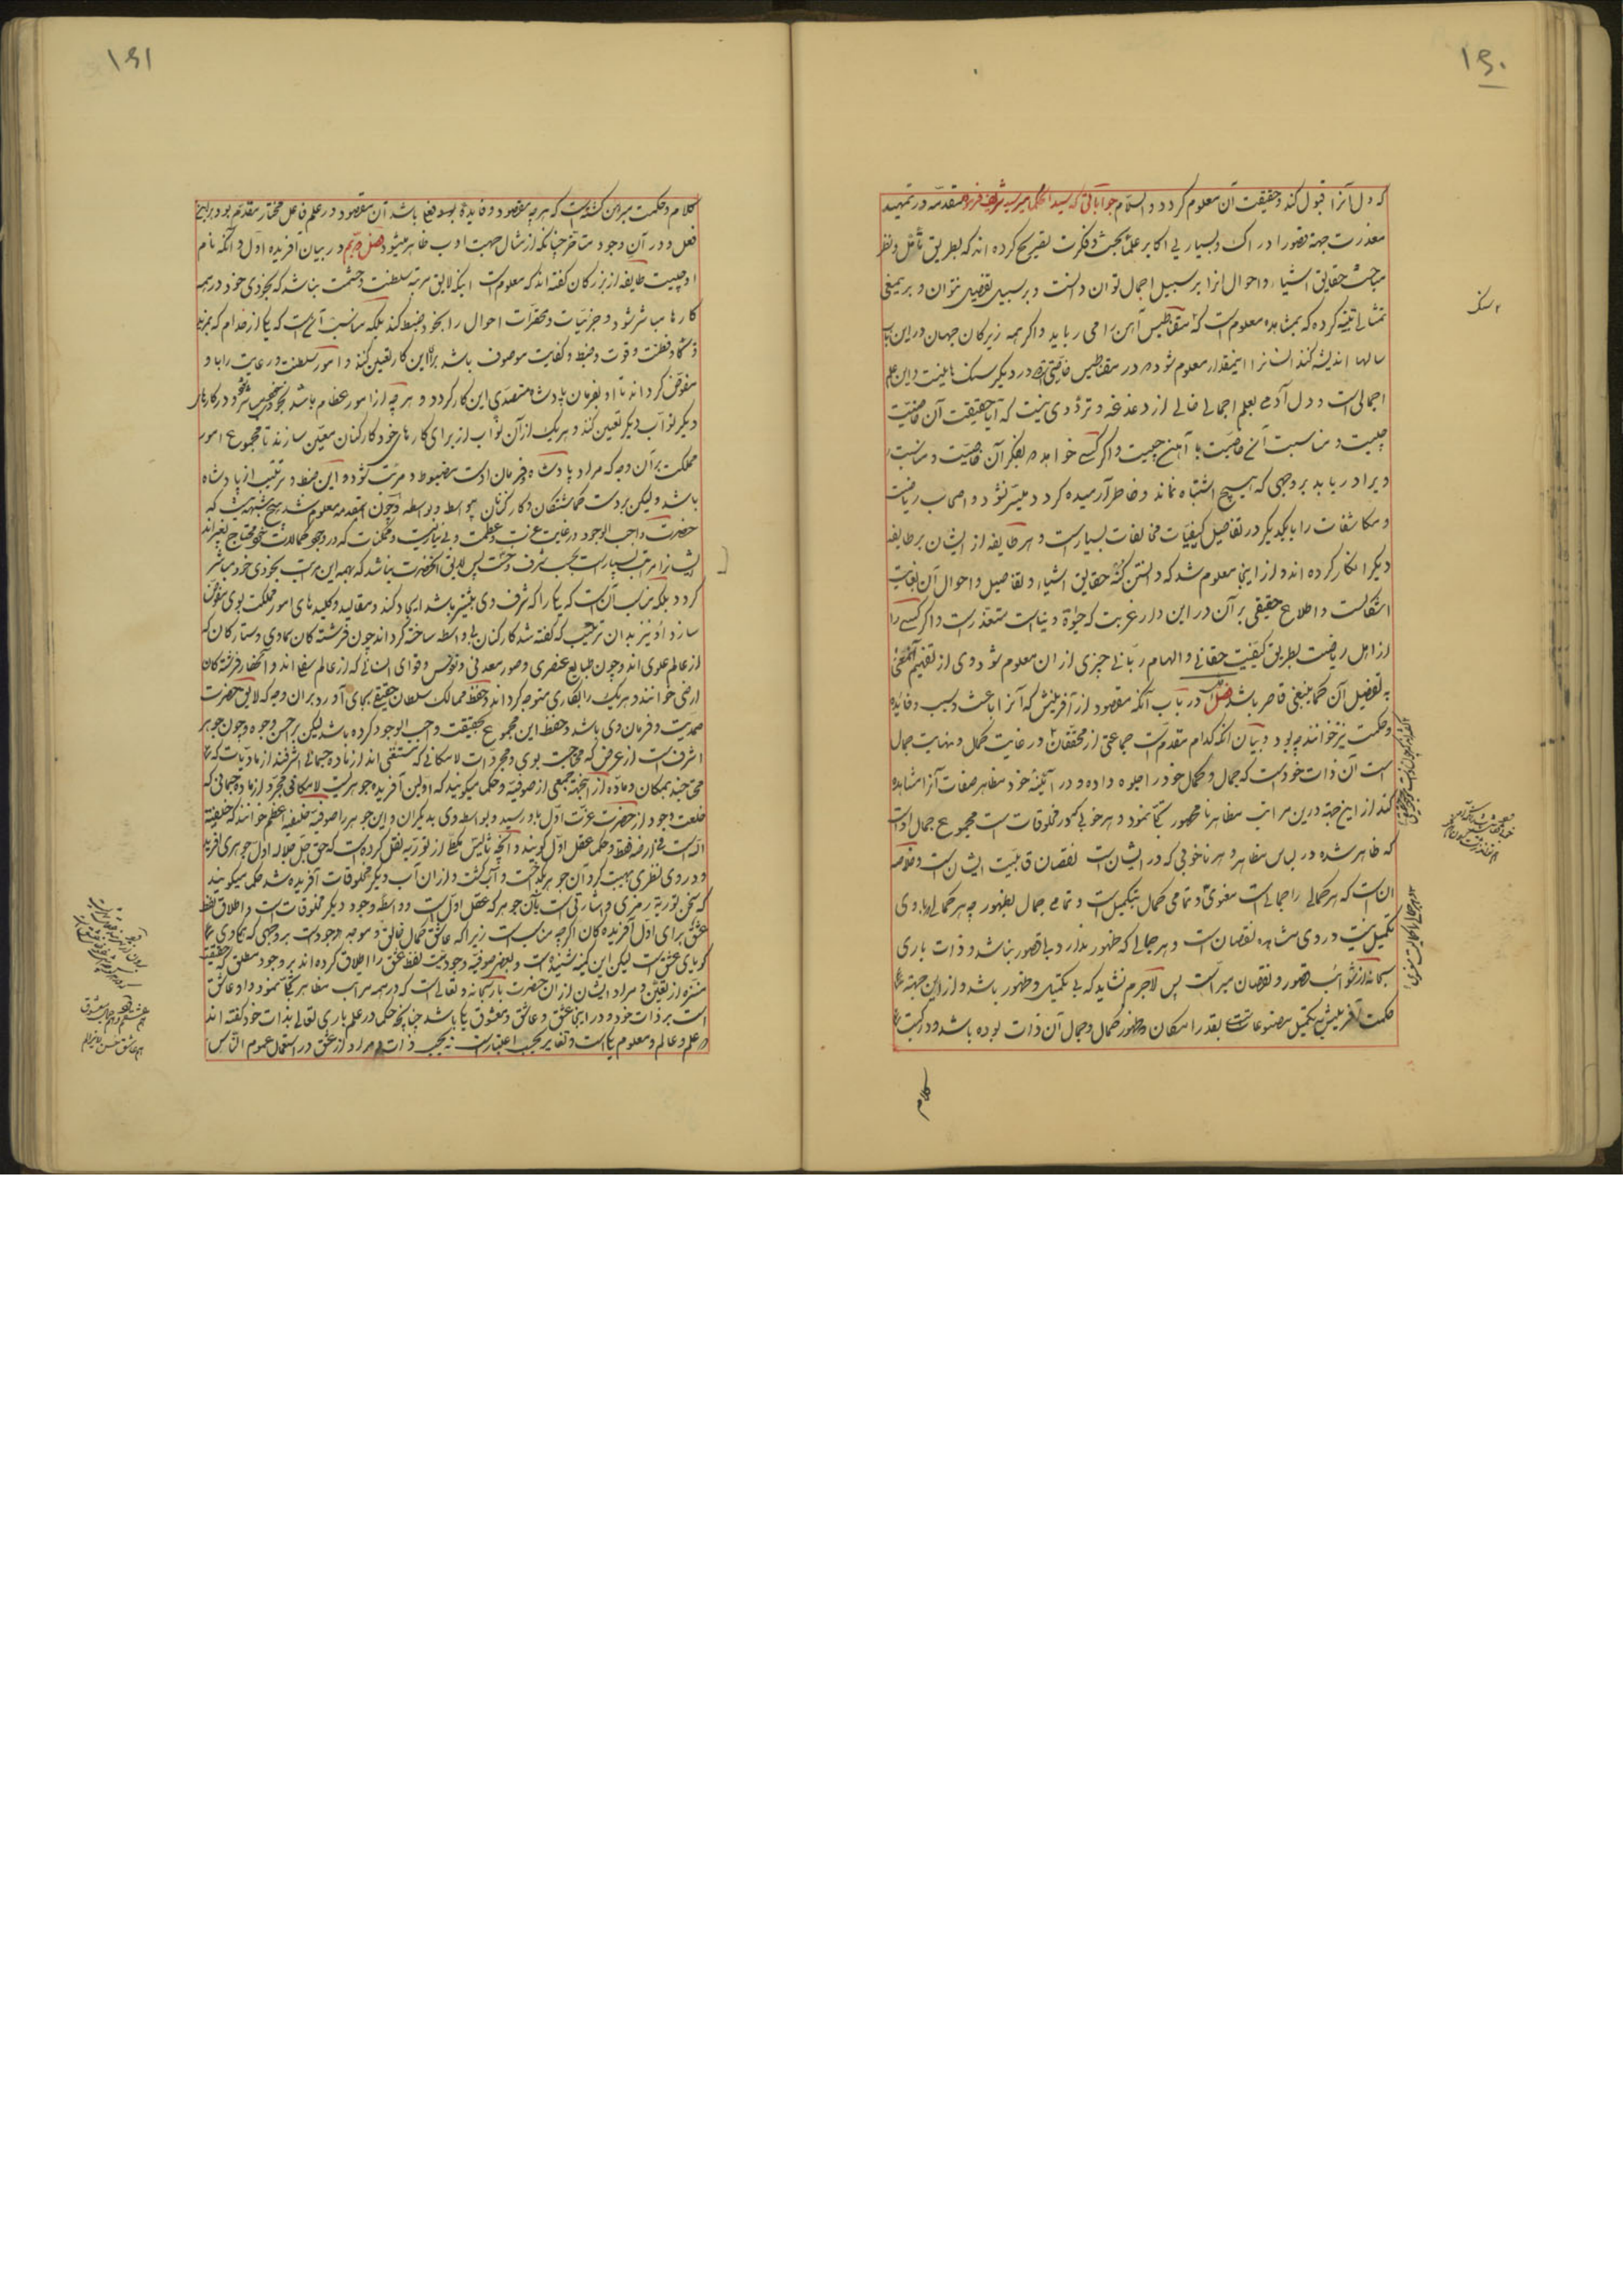 ۱۶۰
که دل آنرا قبول کند و حقیقت آن معلوم گردد والسلام جواباتی که سید الحکما میر سید شریف فرموده مقدمه در تمهید
معذرت جهة قصور ادراک بسیاری اکابر علما بحث و فکرت تصریح کرده اند که بطریق تأمل و نظر
مباحث حقایق اشیاء و احوال آنرا بر سبیل اجمال توان دانست و بر سبیل تفصیل نتوان و بر یمعنی
تمثالی تنبیه کرده که بمشاهده معلوم است که مقناطیس آهن را می رباید و اگر همه زیرکان جهان در این باب
سالها اندیشه کنند ایشانرا اینمقدار معلوم شود که در مقناطیس خاصیتی است که در دیگر سنگ ها نیست و این علم
اجمالی است و دل آدمی بعلم اجمالی خالی از دغدغه و تردّدی نیست که آیا حقیقت آن خاصیّت
چیست و مناسبت آن خاصیت با آهن چیست و اگر کسی خواهد که بفکر آن خاصیّت و مناسبت
ویرا دریابد بر وجهی که هیچ اشتباه نماند و خاطر آرمیده گردد میسّر نشود و اصحاب ریاضت
و مکاشفات را با یکدیگر در تفاصیل کیفیّات مخالفات بسیار است و هر طایفه از ایشان بر طایفه
دیگر انکار کرده اند و از اینجا معلوم شد که دانستن کُنه حقایق اشیاء و تفاصیل و احوال آن بغایت
اشکالست و اطلاع حقیقی بر آن در این دار غربت که حیوة دنیاست متعذّر است و اگر کسی را
از اهل ریاضت بطریق کیفیّت حقانی و الهام ربّانی چیزی از ان معلوم شود وی از تفهیم آنمعنی
به تفصیل آن کما ینبغی قاصر باشد فصل در باب آنکه مقصود از آفرینش که آنرا باعث و سبب و فائده
و حکمت نیز خوانند چه بود و بیان آنکه کدام مقدم است جماعتی از محققان در غایت کمال و نهایت جمال
است آن ذات خود است که جمال و کمال خود را جلوه داده و در آئینهٔ خود مظاهر صفات آنرا مشاهده
کند از این جهة درین مراتب مظاهر نامحصور تجلّی نمود و هر خوبی که در مخلوقات است مجموع جمال اوست
که ظاهر شده در لباس مظاهر و هر ناخوبی که در ایشان است نقصان قابلیّت ایشان است و خلاصه
ان است که هر کمالی را جمالی است معنوی و تمامی کمال بتکمیل است و تمامی جمال بظهور چه هر کمالی که با وی
تکمیل نیست در وی مشاهده نقصان است و هر جمالی که ظهور ندارد بی قصور نباشد و ذات باری
سبحانه از شوائب قصور و نقصان مبراست پس لاجرم نشاید که بی تکمیل و ظهور باشد و از این جهة
حکمت آفرینش تکمیل مصنوعات است بقدر امکان و ظهور کمال و جمال آن ذات بوده باشد و در کتب
کلام
۱۶۱
کلام و حکمت مبرهن گشته است که هر چه مقصود و فایدهٔ بوسه فعل باشد آن مقصود در علم فاعل مختار مقدم بود بر ایجاد
فعل و در آن وجود متأخر چنانکه از مثال جهت ادب ظاهر میشود فصل دویم در بیان آفریده اول و آنکه نام
او چیست طایفه از بزرگان گفته اند که معلوم است اینکه لایق مرتبه سلطنت و حشمت نباشد که بخودی خود در همه
کارها مباشر شود و جزئیات و محقرات احوال را بخود ضبط کند بلکه مناسب آن است که یکی از خدام که بمزید
ذکا و فطنت و قوت و ضبط و کفایت موصوف باشد برای این کار تعیین کند و امور سلطنت و رعایت را باو
مفوّض گرداند تا او بفرمان پادشاه متصدی این کار گردد و هر چه از امور عظام باشد بخود بنفس مباشر شود و در کارهای
دیگر نوّاب دیگر تعیین کند و هر یک از آن نوّاب از برای کارهای خود کارکنان معیّن سازند تا مجموع امور
مملکت بر آن وجه که مراد پادشاه و فرمان اوست مضبوط و مرتّب شود و این ضبط و ترتیب از پادشاه
باشد ولیکن بر دست گماشتگان و کارکنان بواسطه و بواسطه و چون اینمقدمه معلوم شد هیچ شبهه نیست که
حضرت واجب الوجود در غایت عزت و عظمت و بی نیازیست و ممکنات که در وجود و کمالات خود محتاج بغیر اند
ایشانرا مرتبه بسیار است بحسب شرف و خسّت پس لایق آنحضرت نباشد که بهمه این مراتب بخودی خود مباشر
گردد بلکه مناسب آن است که یکی را که شرف وی بیشتر باشد ایجاد کند و مقالید و کلیدهای امور مملکت بوی مفوّض
سازد و او نیز بدان ترتیب که گفته شد کارکنان با واسطه ساخته گرداند چون فرشته گان سماوی و ستارگان که
از عالم علوی اند و چون طبایع عنصری و صور معدنی و نفوس و قوای انسانی که از عالم سفلی اند و آنکه فرشته گان
ارضی خوانند و هر یک را بکاری متوجه گرداند و حفظ ممالک سلطان حقیقی بجای آورد بران وجه که لایق حضرت
صمدیت و فرمان وی باشد و حفظ این مجموع بحقیقت واجب الوجود کرده باشد لیکن بر احسن وجوه و چون جوهر
اشرف است از عرض که محتاجست بوی و مجردات لامکانی که مستغنی اند از ماده جسمانی اشرفند از مادیات که
محتاجند بمکان و ماده از اینجهة جمعی از صوفیّه و حکما میگویند که اولین آفریده جوهریست لامکانی مجرّد از مادهٔ جسمانی که
خلعت وجود از حضرت عزت اول باو رسید و بواسطه وی بدیگران و این جوهر را صوفیه خلیفه اعظم خوانند که خلیفة
الله است فی ارضه فقط و حکما عقل اول گویند و آنچه ثالیس ملطی از توریه نقل کرده است که حق جل جلاله اول جوهری آفرید
و در وی نظری بهیبت کرد آن جوهر بگداخت و آب گشت و از ان آب دیگر مخلوقات آفریده شد حکما میگویند
که سخن توریة رمزی و اشارتی است بآن جوهر که عقل اول است و واسطهٔ وجود دیگر مخلوقات است و اطلاق لفظ
عشق برای اول آفریده گان اگرچه مناسب است زیرا که عاشق کمال خالق و موجد موجودات بر وجهی که
گویای عشق است لیکن این کمینه نشنیده است و بعضی صوفیه وجودیّت لفظ عشق را اطلاق کرده اند بر وجود مطلق که حقیقة
منزه از تعیّن و مراد ایشان از آن حضرت باری سبحانه و تعالی است که در همه مراتب مظاهر تجلّی نموده و او عاشق
است بر ذات خود و در اینجا عشق و عاشق و معشوق یکی باشد چنانچه حکما در علم باری تعالی بذات خود گفته اند
که علم و عالم و معلوم یکی است و تغایر بحسب اعتبار است نه بحسب ذات و مراد از عشق در استعمال عموم الناس